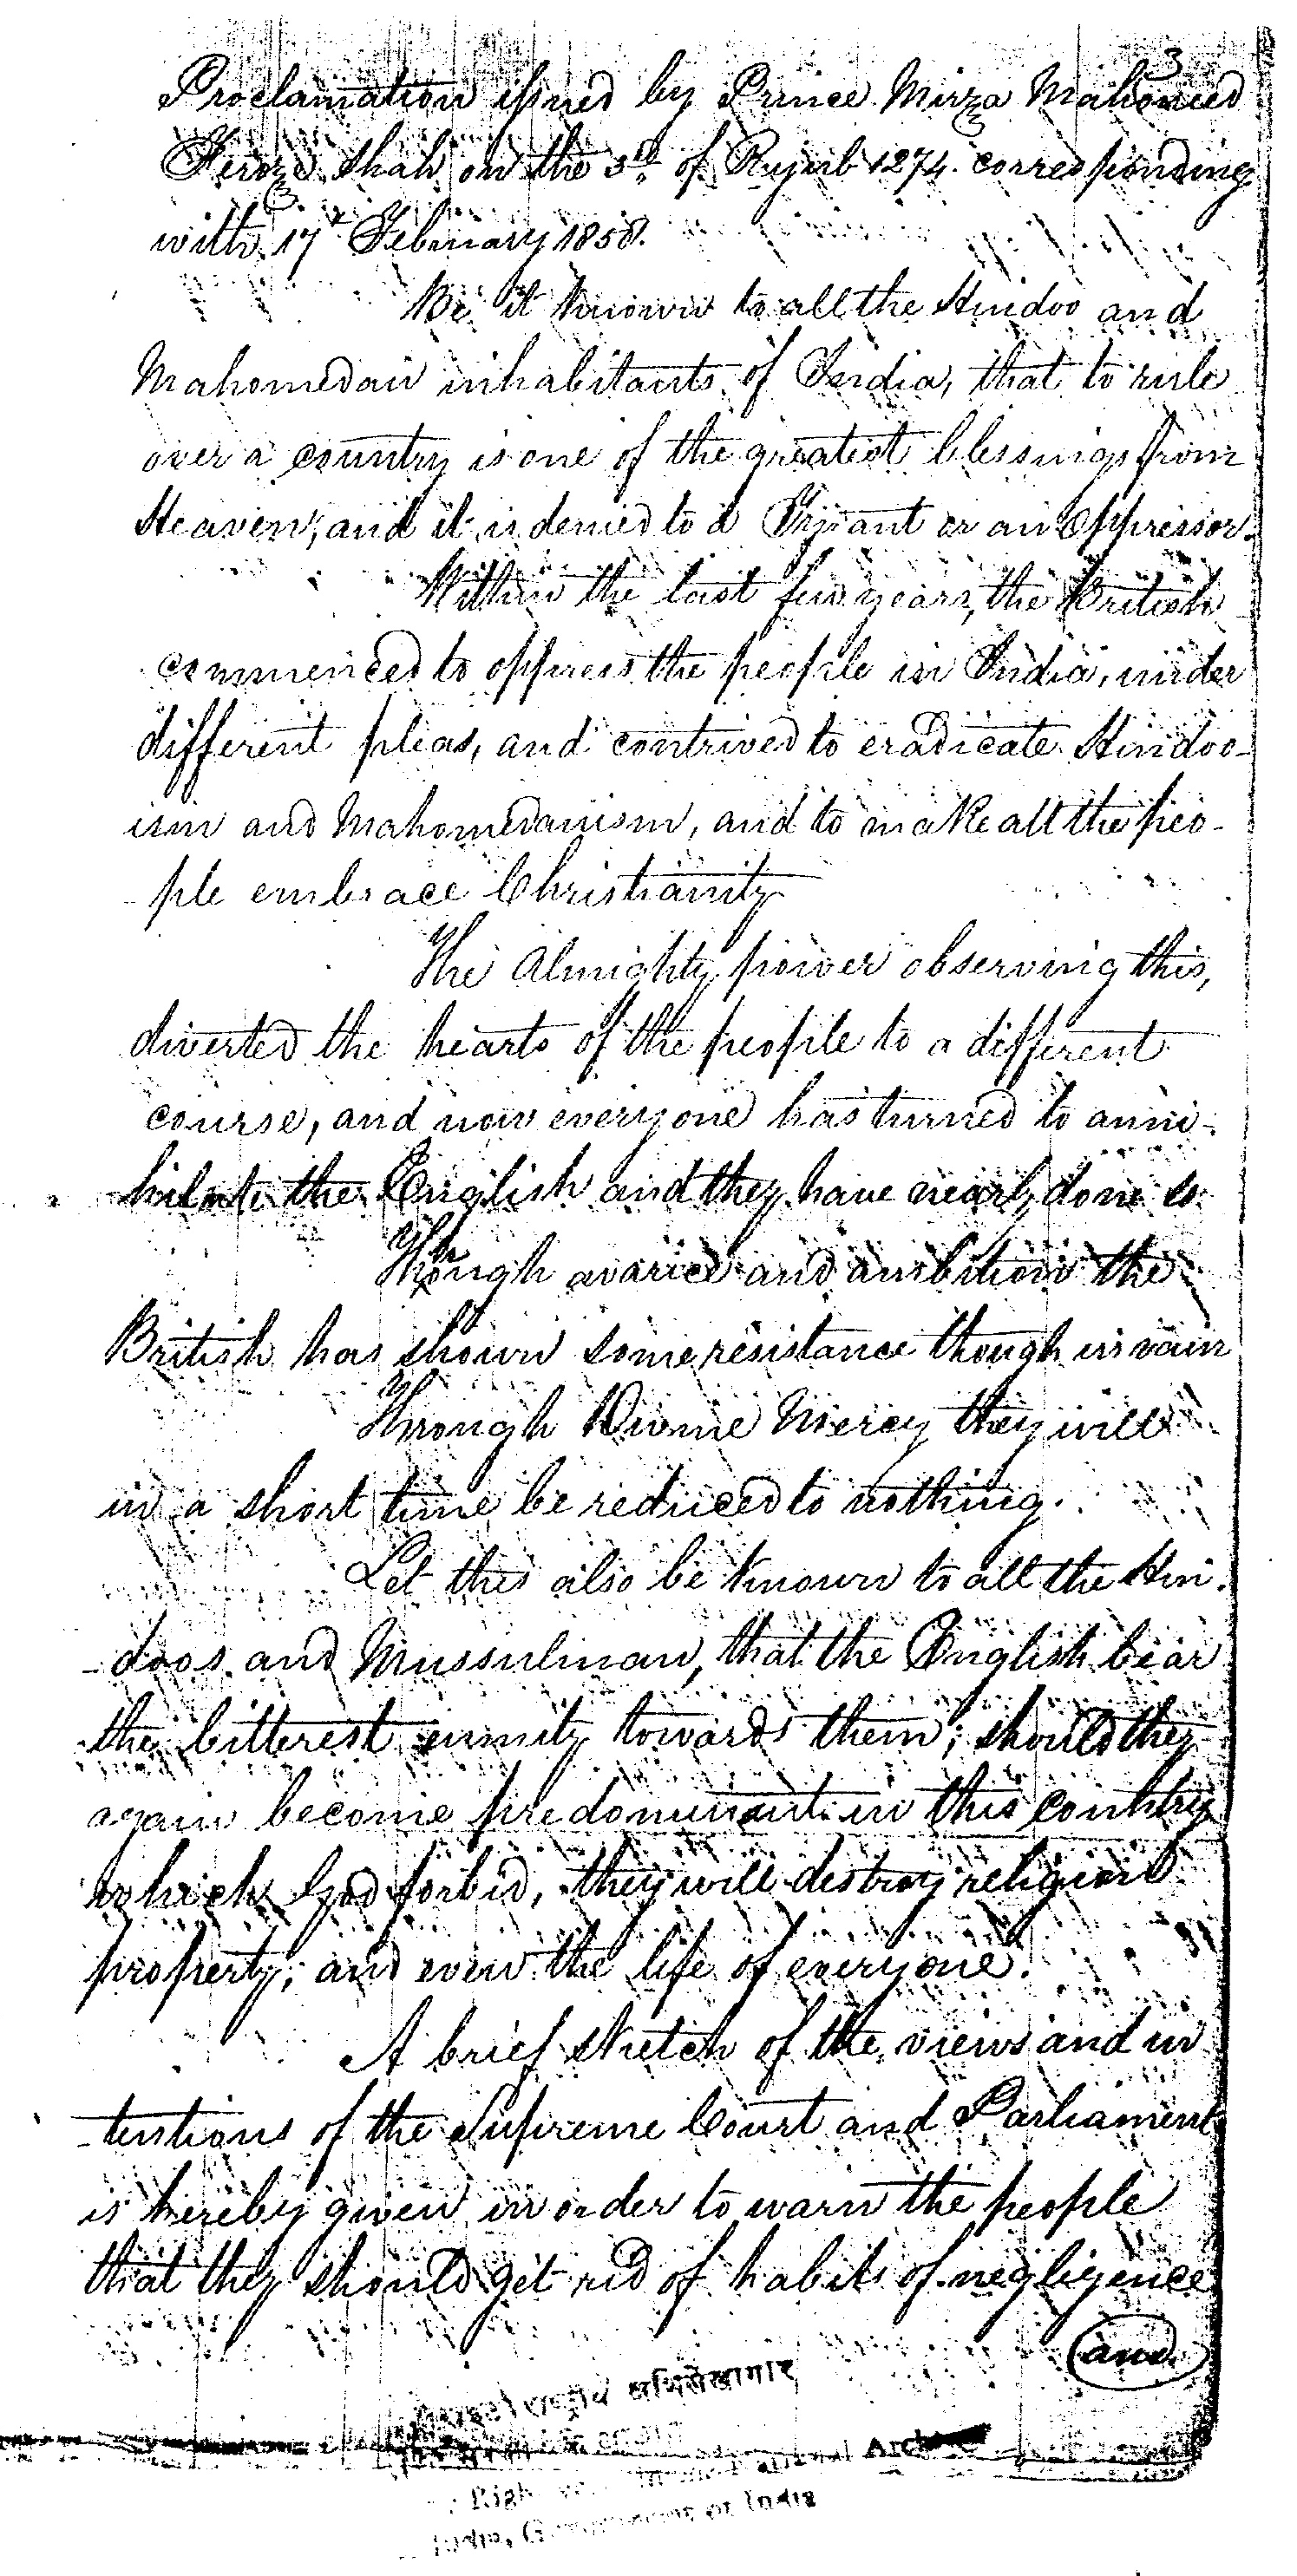 3
Proclamation issued by Prince Mirza Mahomed
Feroze Shah on the 3d. of Rujub 1274. corresponding
with 17t February 1858.
Be it known to all the Hindoo and
Mahomedan inhabitants of India, that to rule
over a country is one of the greatest blessings from
Heaven, and it is denied to a Tyrant or an Oppressor.
Within the last few years, the British
commenced to oppress the people in India, under
different pleas, and contrived to eradicate Hindoo-
ism and Mahomedanism, and to make all the peo-
-ple embrace Christianity
The Almighty power observing this,
diverted the hearts of the people to a different
course, and now every one has turned to anni-
-hilate the English and they have nearly done so.
Through avarice and ambition the
British has shown some resistance though in vain
Through Divine Mercy they will
in a short time be reduced to nothing.
Let this also be known to all the Hin.
-doos and Mussulman, that the English bear
the bitterest enmity towards them; should they
again become predominant in this country
which God forbid, they will destroy religion
property; and even the life of everyone.
A brief sketch of the views and in
-tentions of the Supreme Court and Parliament
is hereby given in order to warn the people
that they should get rid of habits of negligence
and
अभिलेखागार
Archives
India, Government of India